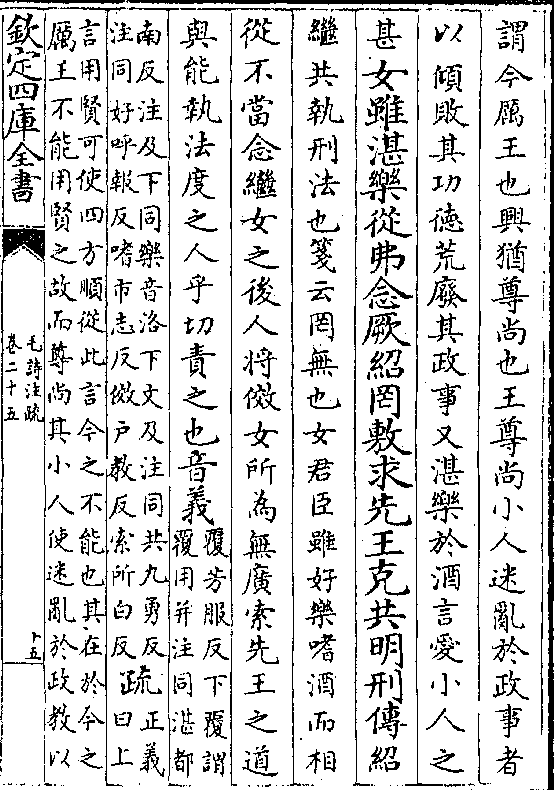 謂今厲王也興猶尊尚也王尊尚小人迷亂於政事者
以傾敗其功德荒廢其政事又湛樂於酒言愛小人之
甚女雖湛樂從弗念厥紹罔敷求先王克共明刑傳紹
繼共執刑法也箋云罔無也女君臣雖好樂嗜酒而相
從不當念繼女之後人將傚女所為無廣索先王之道
與能執法度之人乎切責之也音義
覆芳服反下覆謂
覆用并注同湛都
南反注及下同樂音洛下文及注同共九勇反
注同好呼報反嗜市志反傚戶教反索所白反
疏
正義
曰上
言用賢可使四方順從此言今之不能也其在於今之
厲王不能用賢之故而尊尚其小人使迷亂於政教以
欽定四庫全書
毛詩注疏
卷二十五
十五